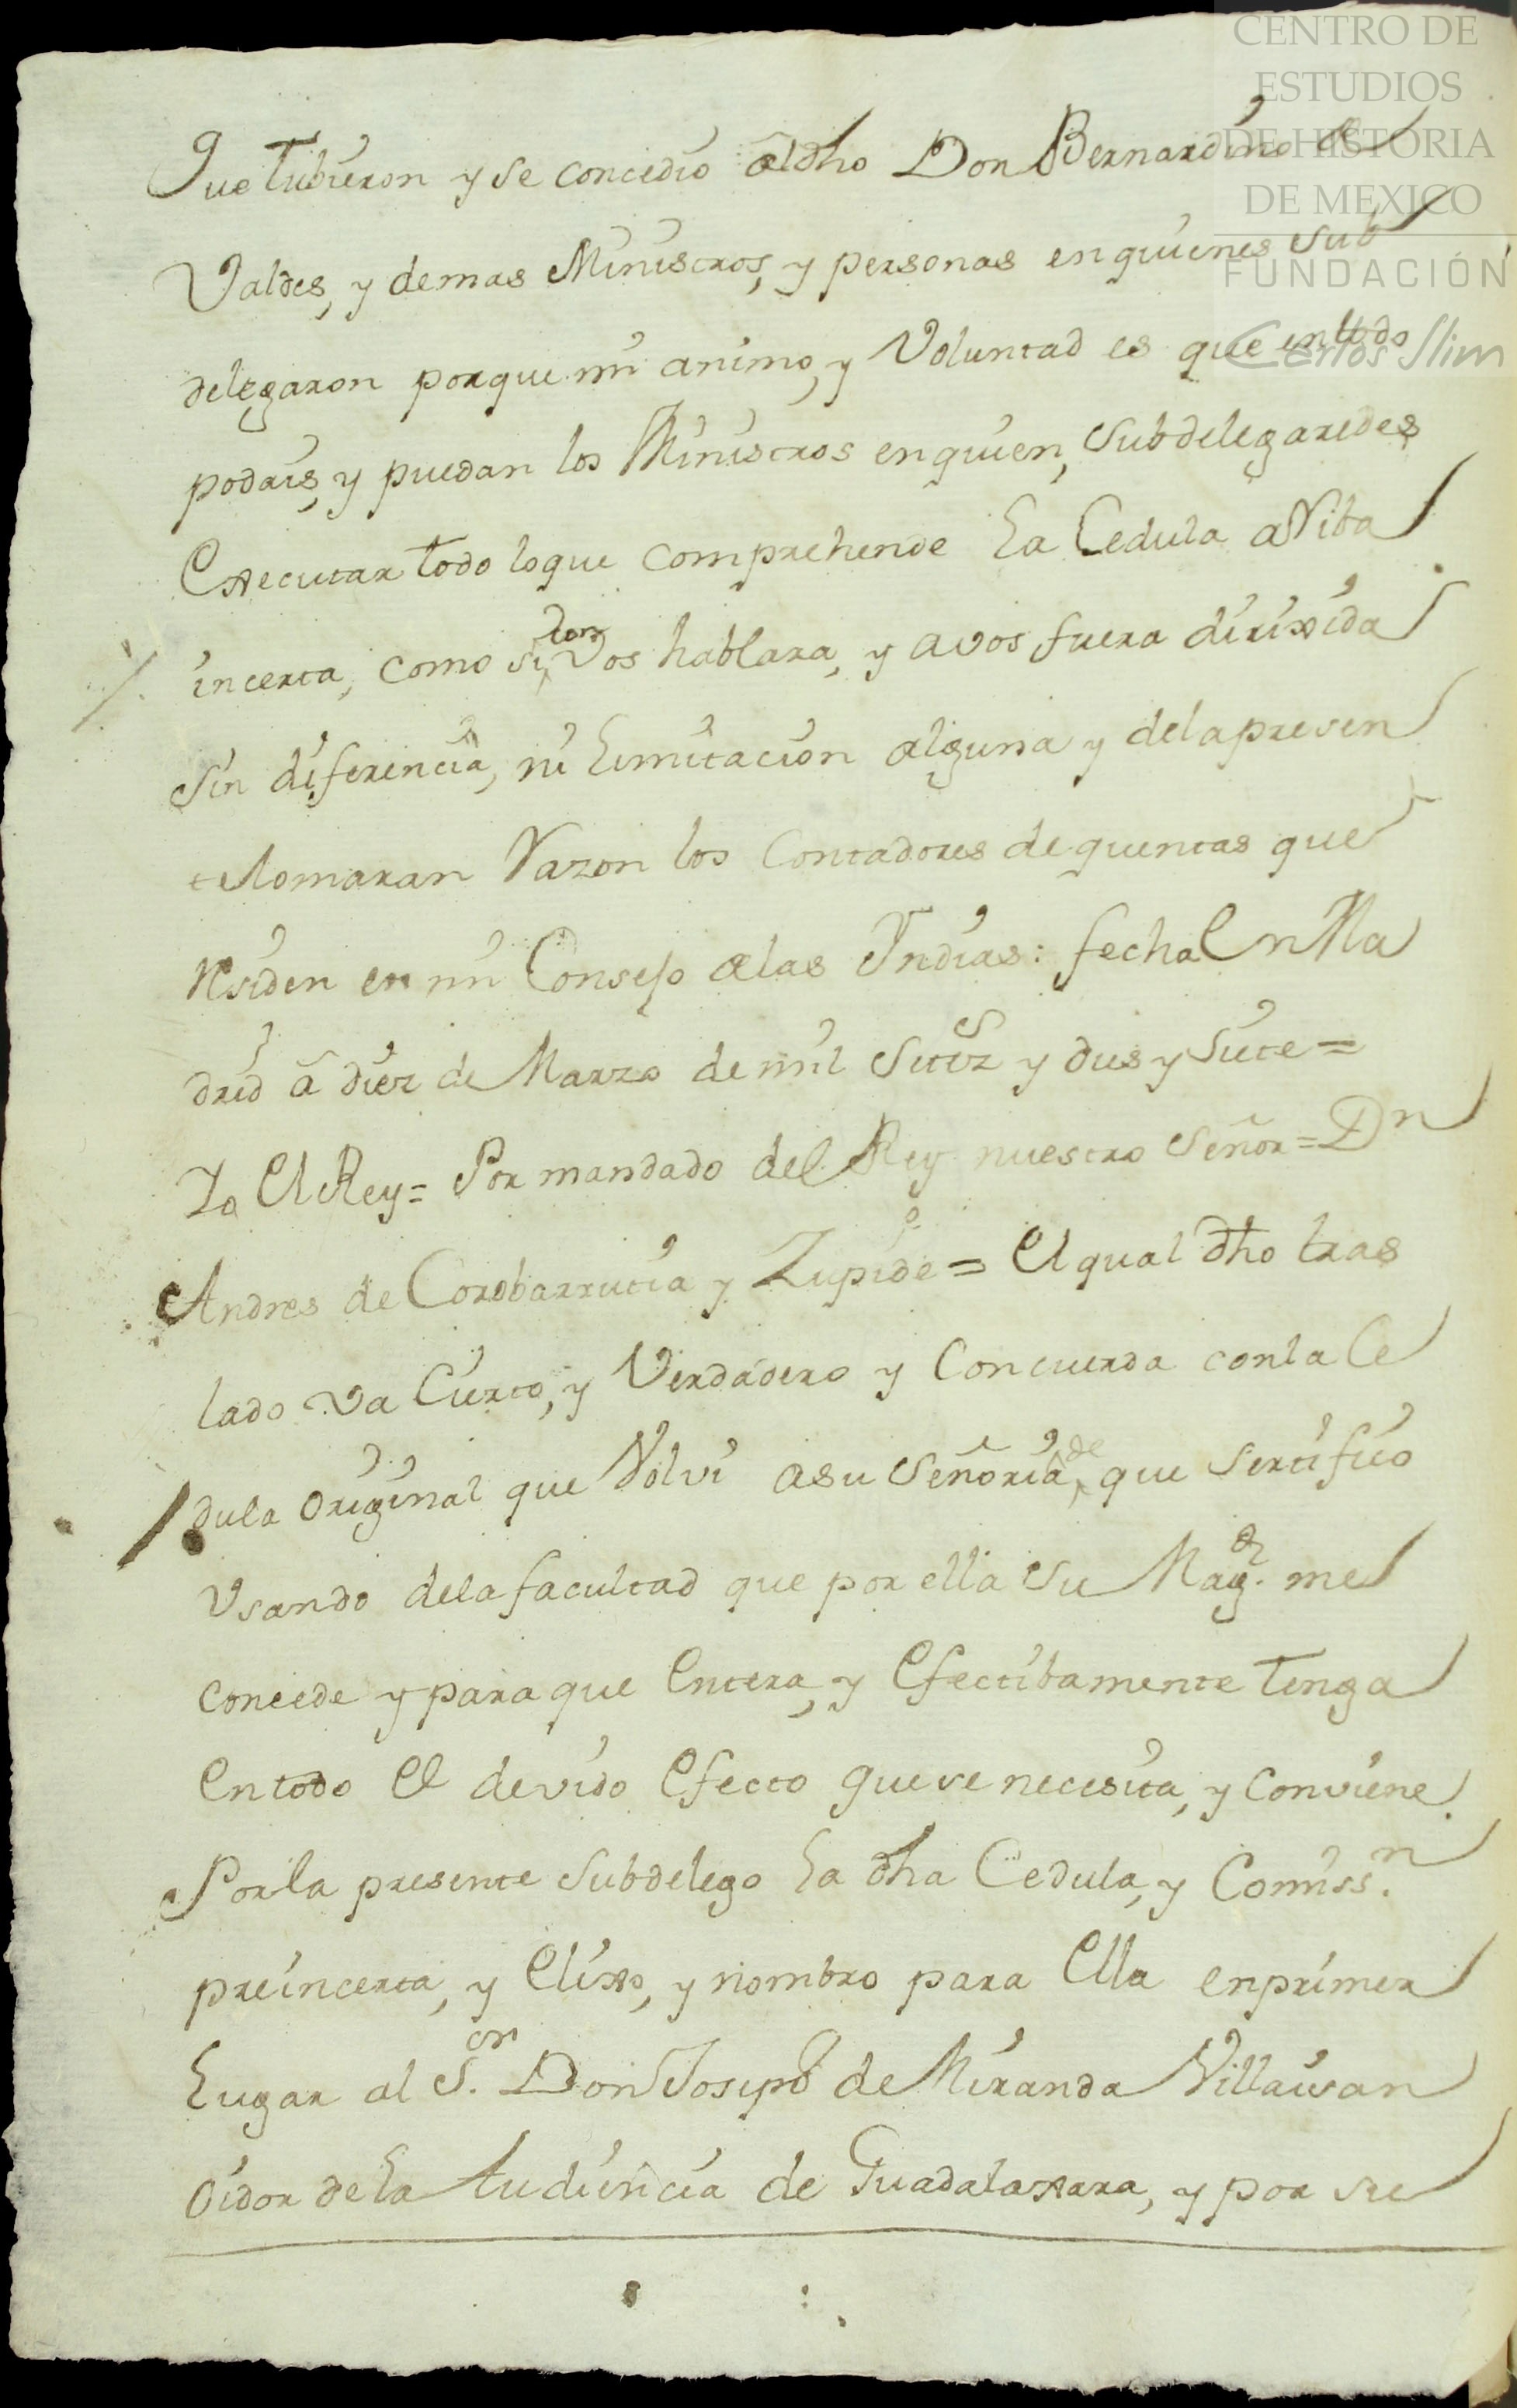 CENTRO DE
ESTUDIOS
DE HISTORIA
DE MEXICO
FUNDACIÓN
Carlos Slim
Que Tubieron y se concedio al dho Don Bernardino de
Valdes, y demas Ministros, y personas en quienes sub
delegaron porque mi animo, y Voluntad es que en todo
podais, y puedan los Ministros en quien, subdelegaredes
Executar todo loque comprehende la Cedula aRiba
incerta, como si con Vos hablara, y avos fuera dirixida
sin diferencia, ni limitacion alguna y delapresen
te tomaran Razon los Contadores de quentas que
Residen en mi Consejo de las Indias: fecha En Ma
drid â diez de Marzo de mil Setez y dies y siete =
Yo El Rey = Por mandado del Rey nuestro Señor = Dn
Andres de Corobarrutia y Zupide = El qual dho tras
lado va Cierto, y Verdadero y Concuerda conla Ce
dula original que Volvi asu Señoria, de que sertifico
Usando dela facultad que por ella su Magd. me
concede y para que Entera, y Efectibamente tenga
En todo El devido Efecto que se necesita, y conviene
Porla presente subdelego la dha Cedula, y Comissn.
preincerta, y Elixo, y nombro para Ella enprimer
lugar al Sor. Don Joseph de Miranda Villaisan
oidor dela Audiencia de Guadalaxara, y por su